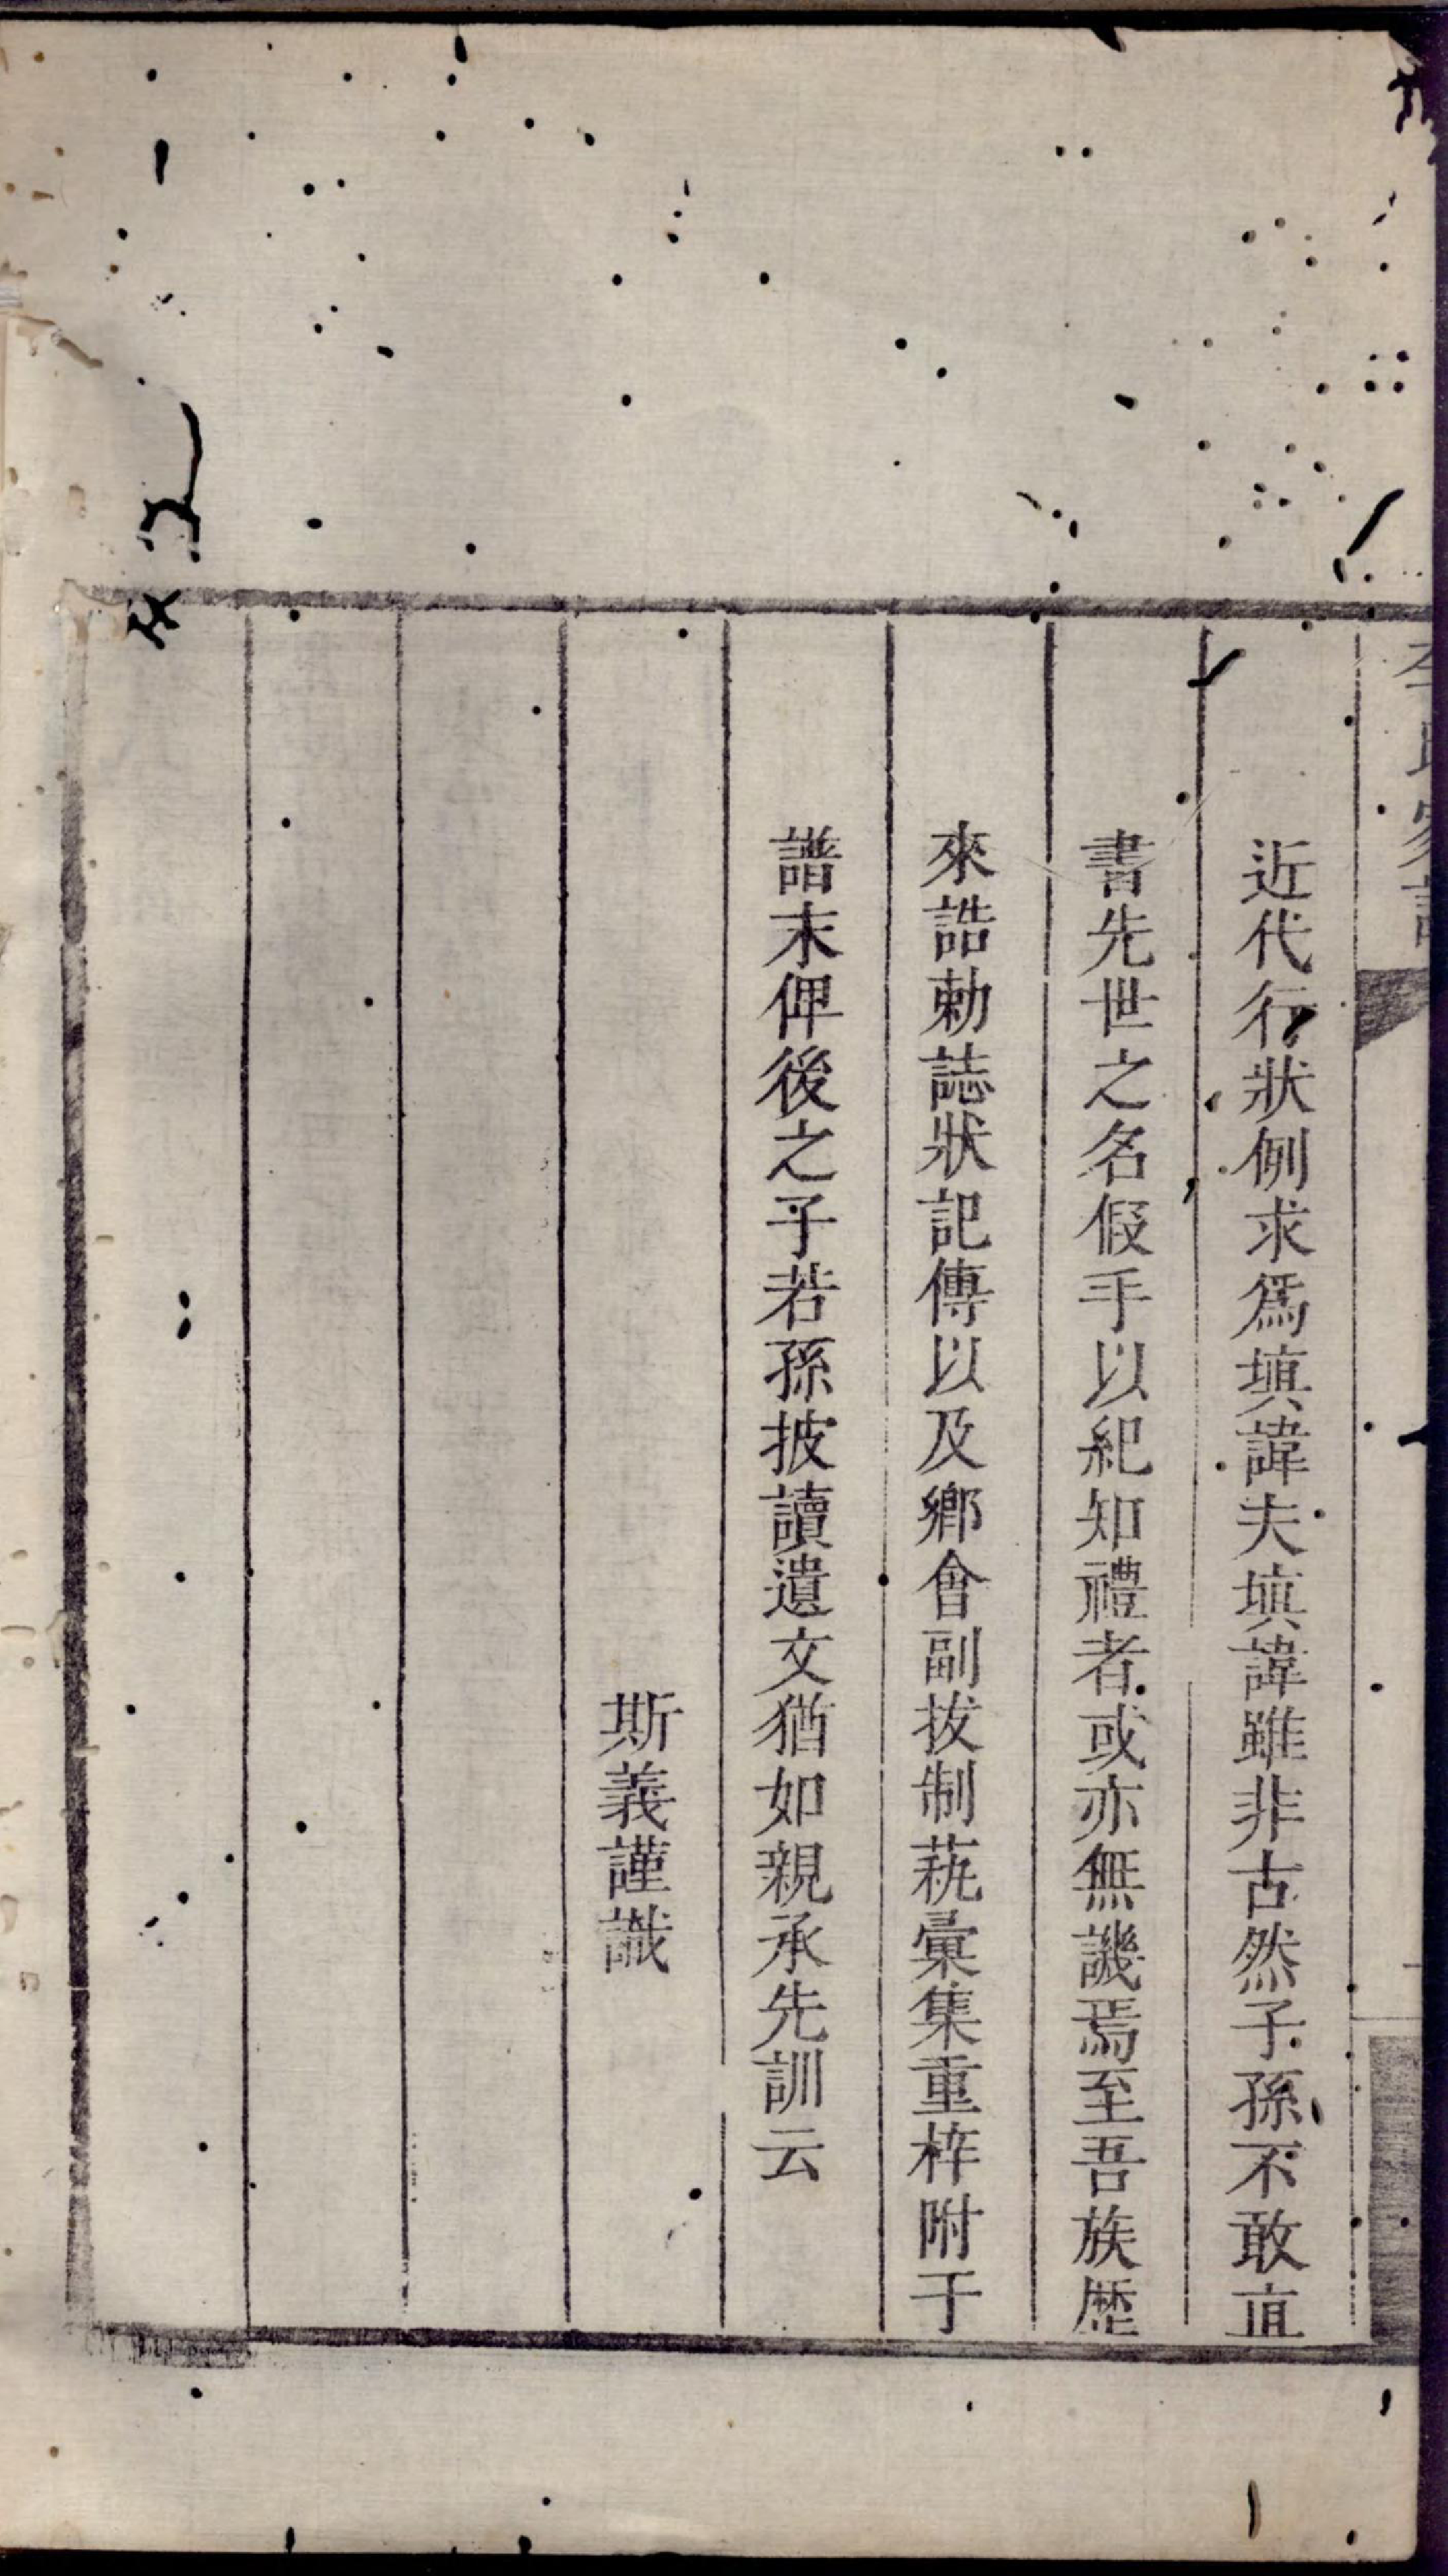 近代行狀例求爲塡諱夫塡諱雖非古然子孫不敢直
書先世之名假手以紀知禮者或亦無譏焉至吾族歷
來誥勅誌狀記傳以及鄉會副拔制蓺彙集重梓附于
譜末俾後之子若孫披讀遺文猶如親承先訓云
斯義謹識